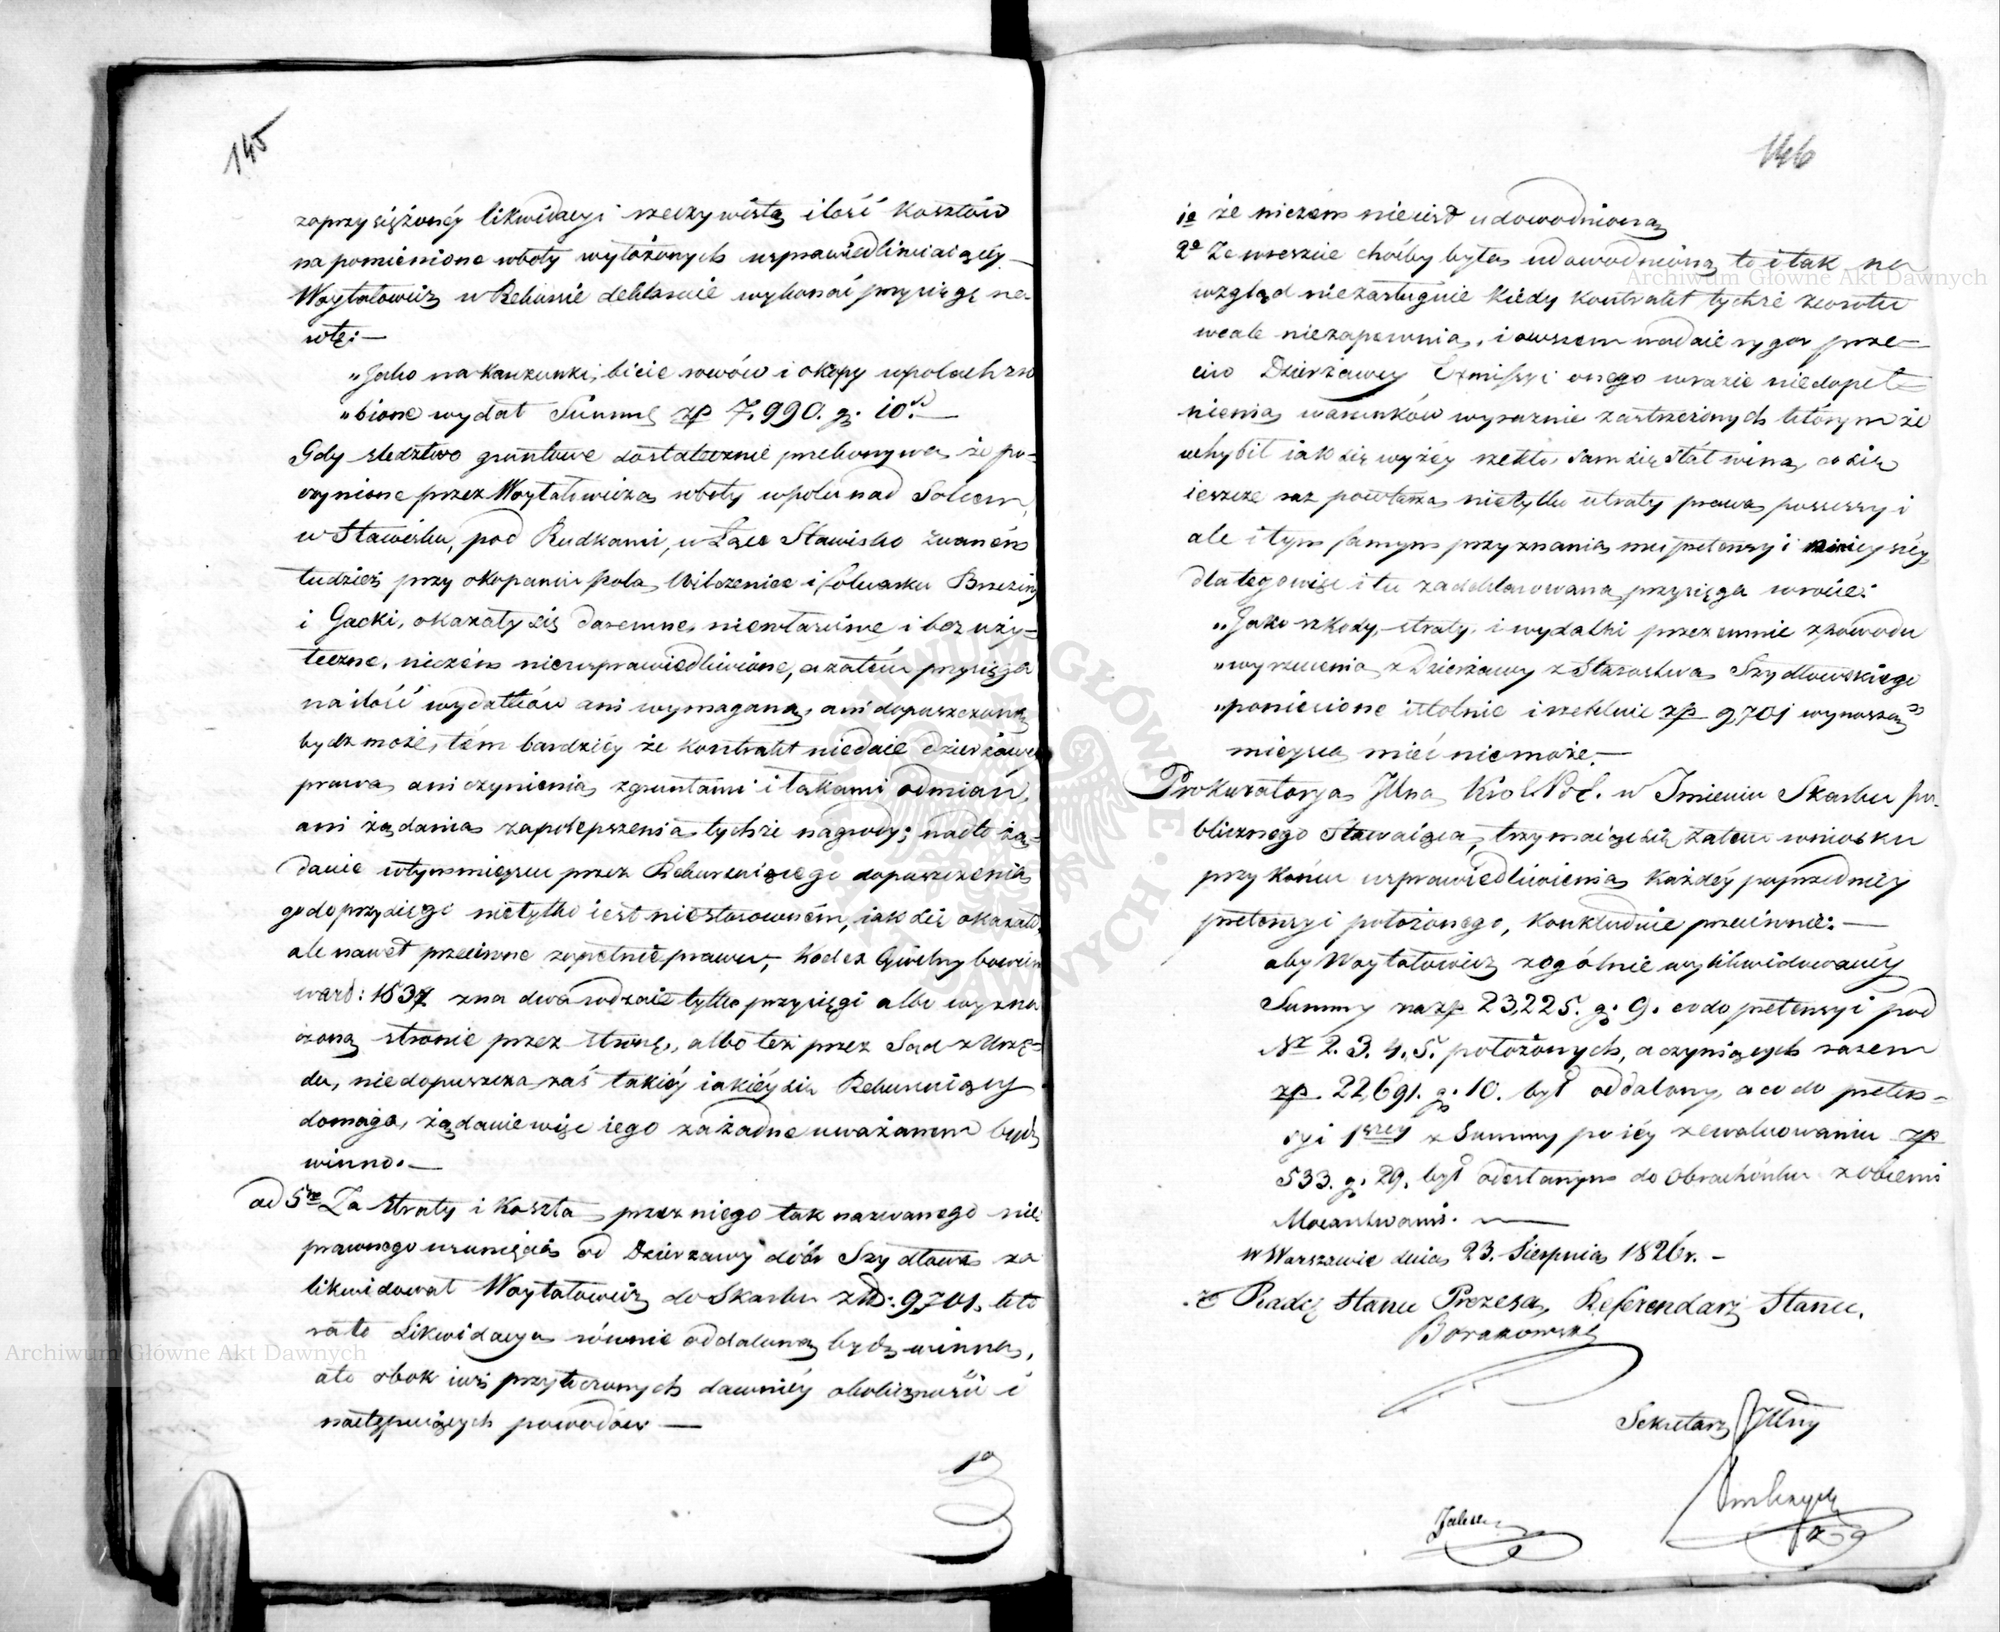 145
zaprzysiężonéy likwidacyi rzeczywistą ilość kosztów
na pomienione roboty wyłożonych usprawiedliwiaiącéy
Woytałowicz w Rekursie deklaruie wykonać przysięgę na
rotę:—
„Jako na karzunki, bicie rowów i okopy w polach zro
„bione wydał Summę zp 7,990. g. 10.—
Gdy śledztwo gruntowe dostatecznie przekonywa, że po-
czynione przez Woytałowicza roboty w polu nad Solcem,
w Stawisku, pod Rudkami, w Łące Stawisko zwaném
tudzież przy okopaniu pola Wilczeniec i folwarku Brzeziny
i Gacki, okazały się daremne, niewłaściwe i bezuży-
teczne, niczém nieusprawiedliwione, a zatém przysięga
na ilość wydatków ani wymaganą, ani dopuszczoną
bydz może, tém bardziéy że kontrakt niedaie dzierżawcy
prawa ani czynienia z gruntami i łąkami odmian,
ani żądania za polepszenia tychże nagrody; nadto żą-
danie w tym mieyscu przez Rekuruiącego dopuszczenia
go do przysięgi nietylko iest niestosowném, iak się okazało,
ale nawet przeciwne zupełnie prawu, Kodex Cywilny bowiem
w art: 1357 zna dwa rodzaie tylko przysięgi albo wyzna
czoną stronie przez stronę, albo też przez Sąd z Urzę-
du, niedopuszcza zaś takiéy iakiéy się Rekuruiący
domaga, żądanie więc iego za żadne uważaném bydz
winno.—
ad 5te Za straty i koszta przez niego tak nazwanego nie
prawnego usunięcia od Dzierżawy dóbr Szydłowa za
likwidował Woytałowicz do Skarbu złt: 9,701, lecz
ta Likwidacya równie oddaloną bydz winna,
a to obok iuż przytoczonych dawniéy okoliczności i
następuiących powodów —
1o
146
1o że niczém nieiest udowodnioną
2o Że wreszcie choćby była udowodnioną to i tak na
wzgląd niezasługuie kiedy kontrakt tychże zwrotu
wcale niezapewnia, i owszem nadaie rygor prze-
ciw Dzierżawcy Exmissyi onego w razie niedopeł-
nienia warunków wyraźnie zastrzeżonych którym że
uchybił iak się wyżéy rzekło, sam się stał winą, co się
ieszcze raz powtarza nietylko utraty prawa possessyi
ale i tym samym przyznania mu pretensyi ninieyszéy,
dla tego więc i tu zadeklarowana przysięga w rocie:
„Jako szkody, straty i wydatki przezemnie z powodu
„wyrzucenia z Dzierżawy z Starostwa Szydłowskiego
„poniesione istotnie i rzetelnie zp 9,701 wynoszą”
mieysca mieć niemoże.—
Prokuratorya Jlna Król. Pol. w Imieniu Skarbu pu-
blicznego Stawaiąca, trzymaiąc się zatem wniosku
przy końcu usprawiedliwienia każdéy poprzedniéy
pretensyi położonego, konkluduie przeciwnie:—
aby Woytałowicz z ogólnie wylikwidowanéy
Summy na zp 23,225. g. 9. co do pretensyi pod
No 2. 3. 4. 5. położonych, a czyniących razem
zp. 22,691. g. 10. był oddalony, a co do preten-
syi 1wszéy z Summy po iéy zewaluowaniu zp
533. g. 29. był odesłanym do Obrachunku z obiemi
Mocarstwami. —
w Warszawie dnia 23. Sierpnia 1826 r. —
Radcę Stanu Prezesa, Referendarz Stanu.
Sekretarz Jlny